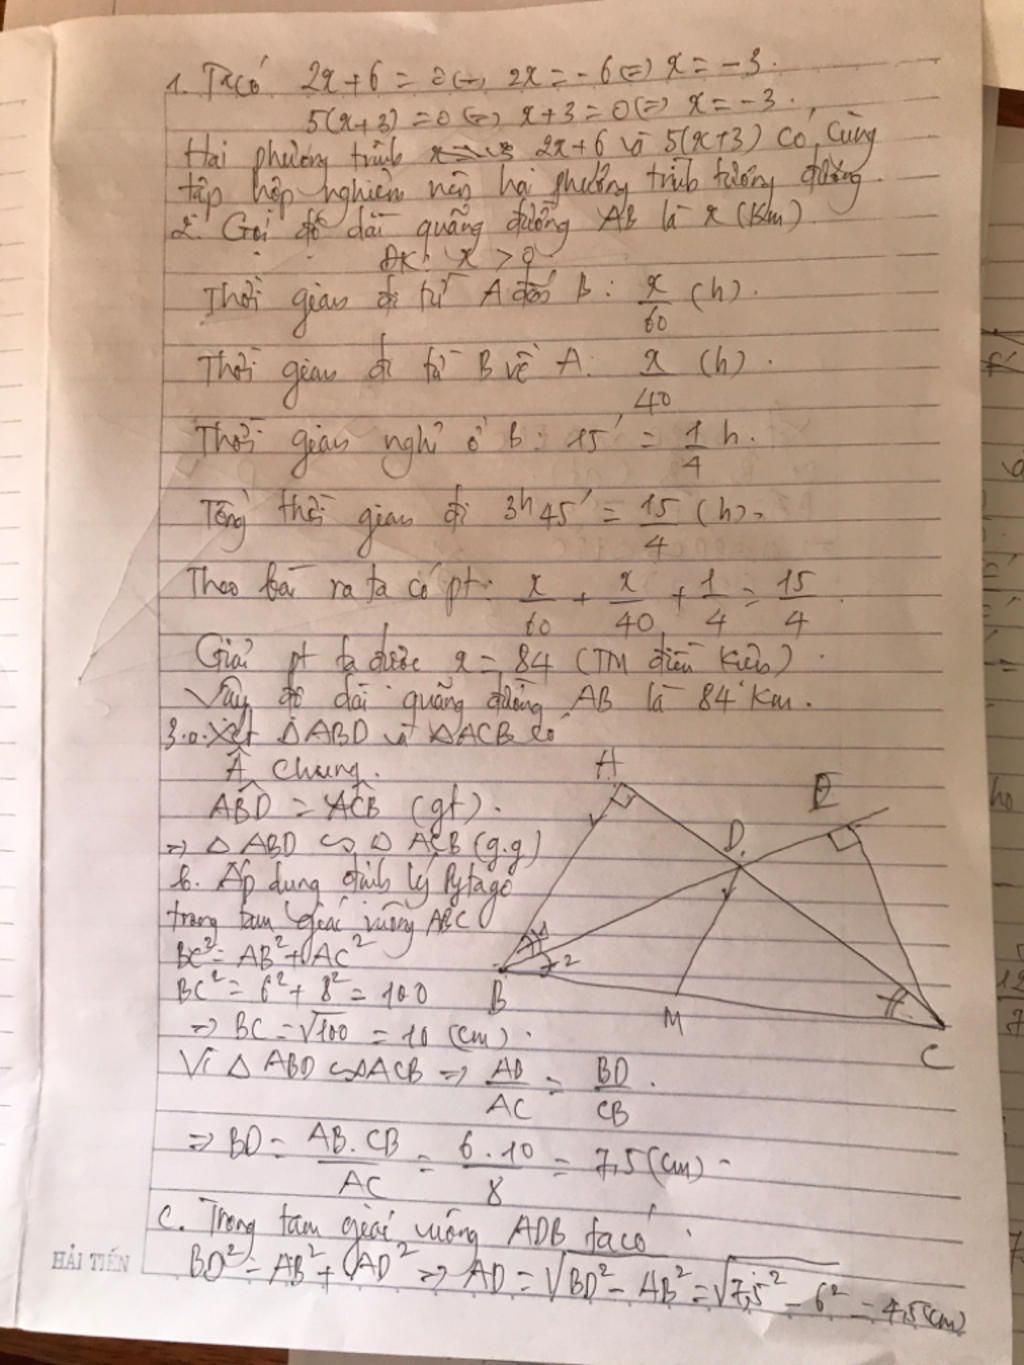 1. Ta có 2x + 6 = 0 <=> 2x = -6 <=> x = -3.
5(x+3) = 0 <=> x+3 = 0 <=> x = -3.
Hai phương trình 2x+6 và 5(x+3) có cùng
tập hợp nghiệm nên hai phương trình tương đương.
2. Gọi độ dài quãng đường AB là x (Km)
ĐK: x > 0
Thời gian đi từ A đến B: x/60 (h).
Thời gian đi từ B về A: x/40 (h).
Thời gian nghỉ ở B: 15' = 1/4 h.
Tổng thời gian đi 3h45' = 15/4 (h).
Theo bài ra ta có pt: x/60 + x/40 + 1/4 = 15/4.
Giải pt ta được x = 84 (TM điều kiện).
Vậy độ dài quãng đường AB là 84 Km.
3.a. Xét △ABD và △ACB có
Â chung.
ABD = ACB (gt).
=> △ABD ∽ △ACB (g.g)
b. Áp dụng định lý Pytago
trong tam giác vuông ABC
BC² = AB² + AC²
BC² = 6² + 8² = 100
=> BC = √100 = 10 (cm).
Vì △ABD ∽ △ACB => AB/AC = BD/CB.
=> BD = AB.CB/AC = 6.10/8 = 7,5 (cm)
c. Trong tam giác vuông ADB ta có
BD² = AB² + AD² => AD = √BD² - AB² = √7,5² - 6² = 4,5 (cm)
A
E
D
1
2
B
M
C
HẢI TIẾN